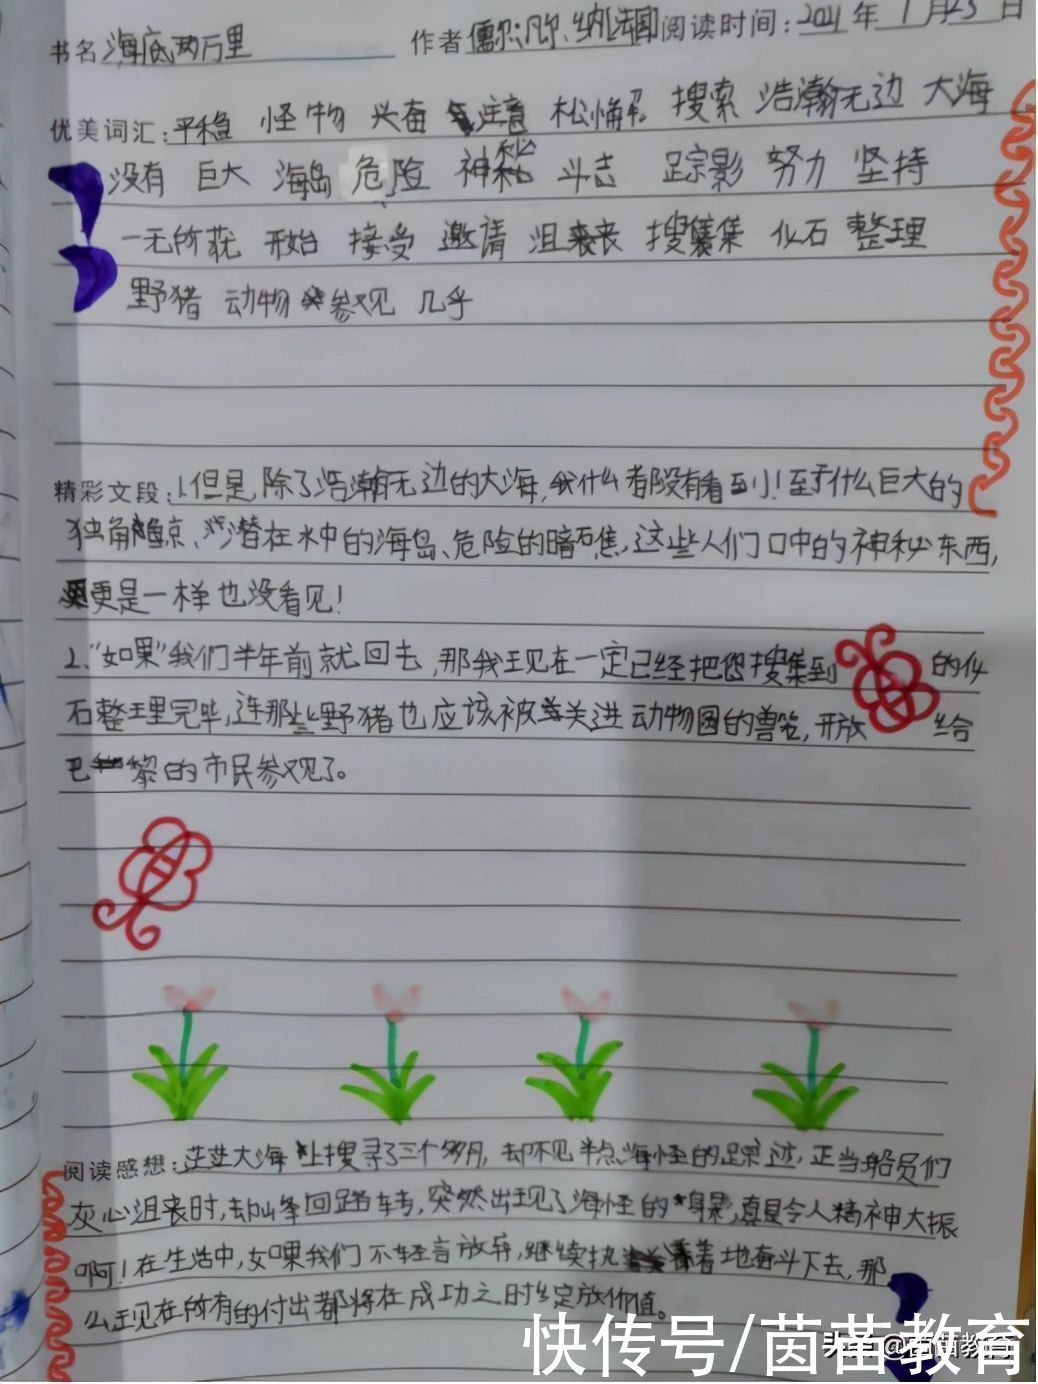 书名海底两万里 作者儒尔·凡尔纳(法国)阅读时间:2021年1月23日
优美词汇:平稳 怪物 兴奋 注意 松懈 搜索 浩瀚无边 大海
没有 巨大 海岛 危险 神秘 斗志 踪影 努力 坚持
一无所获 开始 接受 邀请 沮丧 搜集 化石 整理
野猪 动物 参观 几乎
精彩文段:1.但是,除了浩瀚无边的大海,我什么都没有看到!至于什么巨大的
独角鲸、潜在水中的海岛、危险的暗礁,这些人们口中的神秘东西,
更是一样也没看见!
2.“如果”我们半年前就回去,那我现在一定已经把您搜集到的化
石整理完毕,连那些野猪也应该被关进动物园的兽笼,开放给
巴黎的市民参观了。
阅读感想:茫茫大海上搜寻了三个多月,却不见半点海怪的踪迹,正当船员们
灰心沮丧时,却峰回路转,突然出现了海怪的身影,真是令人精神大振
啊!在生活中,如果我们不轻言放弃,继续执着地奋斗下去,那
么现在所有的付出都将在成功之时绽放价值。
快传号/茵苗教育
头条@茵苗教育